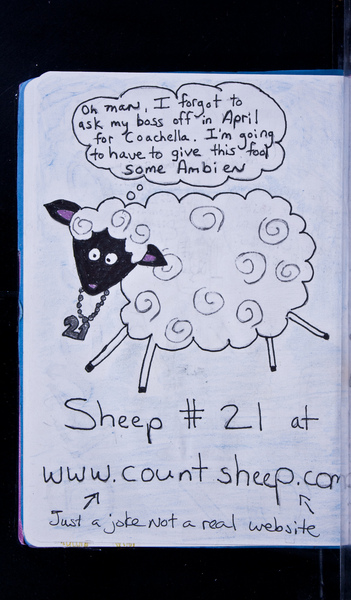 Oh man, I forgot to
ask my boss off in April
for Coachella. I'm going
to have to give this fool
some Ambien
21
Sheep # 21 at
www.countsheep.com
Just a joke not a real website